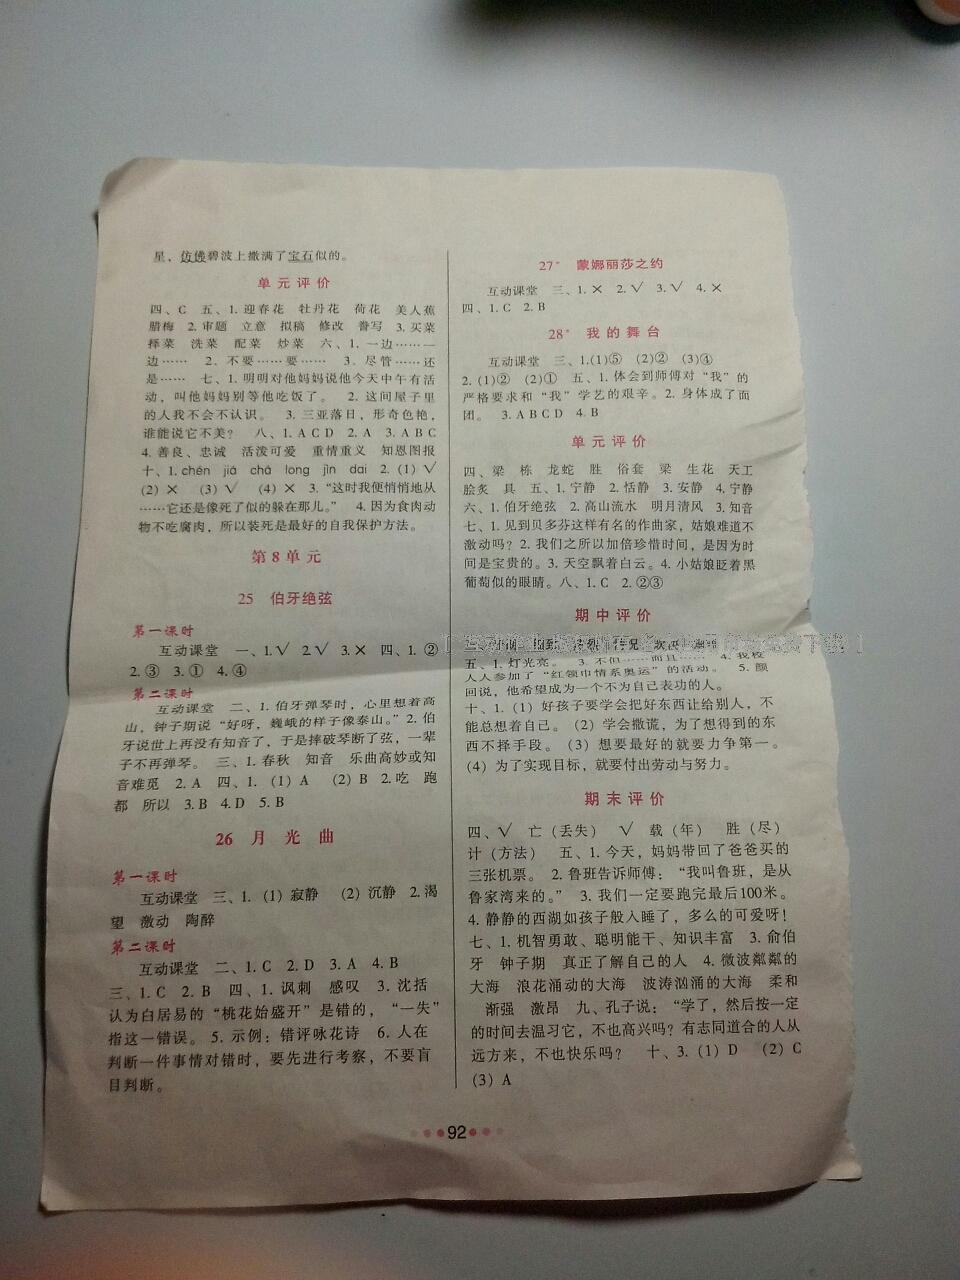 星，仿佛碧波上撒满了宝石似的。
单元评价
四、C 五、1.迎春花 牡丹花 荷花 美人蕉
腊梅 2.审题 立意 拟稿 修改 誊写 3.买菜
择菜 洗菜 配菜 炒菜 六、1.一边……一
边…… 2.不要……要…… 3.尽管……还
是…… 七、1.明明对他妈妈说他今天中午有活
动，叫他妈妈别等他吃饭了。 2.这间屋子里
的人我不会不认识。 3.三亚落日，形奇色艳，
谁能说它不美？ 八、1.A C D 2.A 3.A B C
4.善良、忠诚 活泼可爱 重情重义 知恩图报
十、1.chén jiá chā long jìn dai 2.(1)√
(2)× (3)√ (4)× 3.“这时我便悄悄地从
……它还是像死了似的躲在那儿。” 4.因为食肉动
物不吃腐肉，所以装死是最好的自我保护方法。
第8单元
25 伯牙绝弦
第一课时
互动课堂 一、1.√ 2.√ 3.× 四、1.②
2.③ 3.① 4.④
第二课时
互动课堂 二、1.伯牙弹琴时，心里想着高
山，钟子期说“好呀，巍峨的样子像泰山。”2.伯
牙说世上再没有知音了，于是摔破琴断了弦，一辈
子不再弹琴。 三、1.春秋 知音 乐曲高妙或知
音难觅 2.A 四、1.(1)A (2)B 2.吃 跑
都 所以 3.B 4.D 5.B
26 月光曲
第一课时
互动课堂 三、1.(1)寂静 (2)沉静 2.渴
望 激动 陶醉
第二课时
互动课堂 二、1.C 2.D 3.A 4.B
三、1.C 2.B 四、1.讽刺 感叹 3.沈括
认为白居易的“桃花始盛开”是错的，“一失”
指这一错误。5.示例：错评咏花诗 6.人在
判断一件事情对错时，要先进行考察，不要盲
目判断。
27* 蒙娜丽莎之约
互动课堂 三、1.× 2.√ 3.√ 4.×
四、1.C 2.B
28* 我的舞台
互动课堂 三、1.(1)⑤ (2)② (3)④
2.(1)② (2)① 五、1.体会到师傅对“我”的
严格要求和“我”学艺的艰辛。2.身体成了面
团。 3.A B C D 4.B
单元评价
四、梁 栋 龙蛇 胜 俗套 梁 生花 天工
脍炙 具 五、1.宁静 2.恬静 3.安静 4.宁静
六、1.伯牙绝弦 2.高山流水 明月清风 3.知音
七、1.见到贝多芬这样有名的作曲家，姑娘难道不
激动吗？2.我们之所以加倍珍惜时间，是因为时
间是宝贵的。3.天空飘着白云。4.小姑娘眨着黑
葡萄似的眼睛。八、1.C 2.②③
期中评价
五、1.灯光亮。 3.不但……而且…… 4.我校
人人参加了“红领巾情系奥运”的活动。 5.颜
回说，他希望成为一个不为自己表功的人。
十、1.(1)好孩子要学会把好东西让给别人，不
能总想着自己。(2)学会撒谎，为了想得到的东
西不择手段。(3)想要最好的就要力争第一。
(4)为了实现目标，就要付出劳动与努力。
期末评价
四、√ 亡(丢失) √ 载(年) 胜(尽)
计(方法) 五、1.今天，妈妈带回了爸爸买的
三张机票。 2.鲁班告诉师傅：“我叫鲁班，是从
鲁家湾来的。” 3.我们一定要跑完最后100米。
4.静静的西湖如孩子般入睡了，多么的可爱呀！
七、1.机智勇敢、聪明能干、知识丰富 3.俞伯
牙 钟子期 真正了解自己的人 4.微波粼粼的
大海 浪花涌动的大海 波涛汹涌的大海 柔和
渐强 激昂 九、孔子说：“学了，然后按一定
的时间去温习它，不也高兴吗？有志同道合的人从
远方来，不也快乐吗？ 十、3.(1)D (2)C
(3)A
92